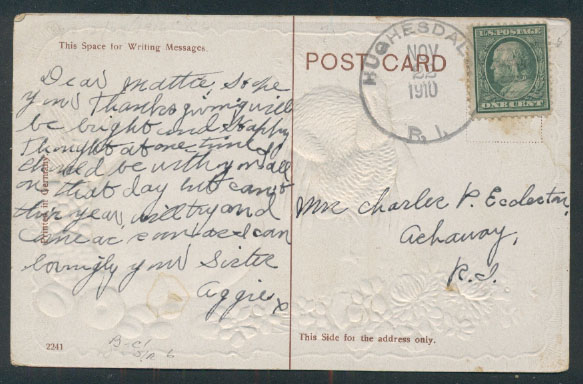 This Space for Writing Messages.
POST CARD
HUGHESDALE
NOV
22
1910
R. I.
U.S. POSTAGE
ONE CENT
Dear Mattie, I hope
your Thanksgiving will
be bright and Happy
Thought at one time I
should be with you all
on that day but can't
this year, will try and
come as soon as I can
lovingly your Sister
Aggie x
Printed in Germany
Mrs Charles P. Eccleston,
Ashaway,
R.I.
This Side for the address only.
2241